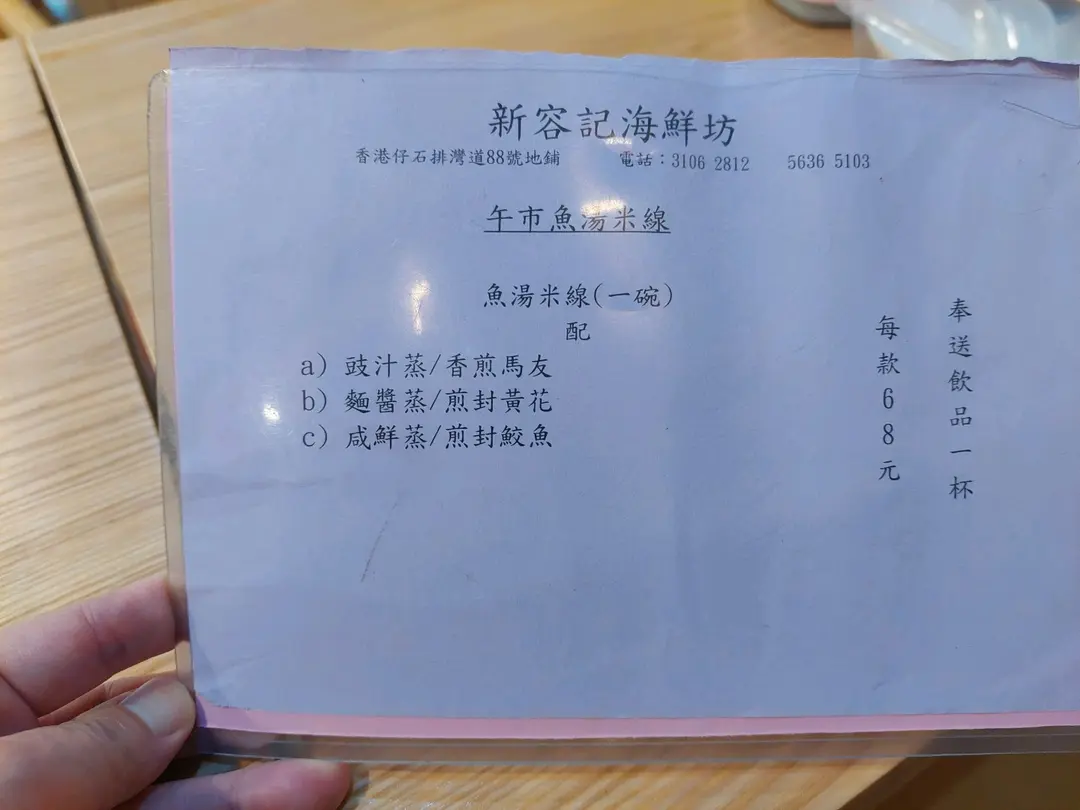 新容記海鮮坊
香港仔石排灣道88號地鋪 電話：3106 2812 5636 5103
午市魚湯米線
魚湯米線(一碗)
配
a) 豉汁蒸/香煎馬友
b) 麵醬蒸/煎封黃花
c) 咸鮮蒸/煎封鮫魚
每款68元
奉送飲品一杯